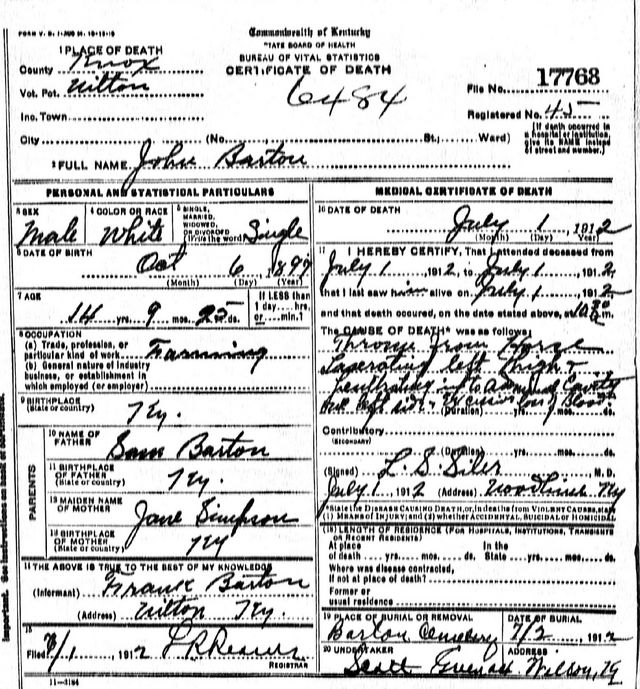 FORM V. S. 1
Commonwealth of Kentucky
STATE BOARD OF HEALTH
BUREAU OF VITAL STATISTICS
CERTIFICATE OF DEATH
1 PLACE OF DEATH
County Knox
Vot. Pct. Wilton
Inc. Town
6484
File No. 17768
Registered No. 45
City (No. St.; Ward)
(If death occurred in
a hospital or institution,
give its NAME instead
of street and number.)
2 FULL NAME John Barton
PERSONAL AND STATISTICAL PARTICULARS
3 SEX
Male
4 COLOR OR RACE
White
5 SINGLE,
MARRIED,
WIDOWED,
OR DIVORCED
(Write the word) Single
6 DATE OF BIRTH
Oct 6 1897
(Month) (Day) (Year)
7 AGE
14 yrs. 9 mos. 25 ds.
If LESS than
1 day hrs.
or min.?
8 OCCUPATION
(a) Trade, profession, or
particular kind of work Farming
(b) General nature of industry
business, or establishment in
which employed (or employer)
9 BIRTHPLACE
(State or country)
Ky.
PARENTS
10 NAME OF
FATHER
Sam Barton
11 BIRTHPLACE
OF FATHER
(State or country)
Ky.
12 MAIDEN NAME
OF MOTHER
Jane Simpson
13 BIRTHPLACE
OF MOTHER
(State or country)
Ky
14 THE ABOVE IS TRUE TO THE BEST OF MY KNOWLEDGE
(Informant) Frank Barton
(Address) Wilton Ky.
15
Filed 7/1, 1912
REGISTRAR
11-3184
MEDICAL CERTIFICATE OF DEATH
16 DATE OF DEATH
July 1, 1912
(Month) (Day) Year
17 I HEREBY CERTIFY, That I attended deceased from
July 1, 1912, to July 1, 1912,
that I last saw him alive on July 1, 1912
and that death occured, on the date stated above, at 10 m.
The CAUSE OF DEATH* was as follows:
Throwe from Horse
Laserating left thigh &
penitrating into abdominal Cavity
left side & Excessive loss of Blood
(Duration) yrs. mos. ds.
Contributory
(SECONDARY)
(Duration) yrs. mos. ds.
(Signed) L. S. Siler M. D.
July 1, 1912 (Address) Ky
*State the DISEASE CAUSING DEATH, or, in deaths from VIOLENT CAUSES, state
(1) MEANS OF INJURY; and (2) whether ACCIDENTAL, SUICIDAL or HOMICIDAL.
(18) LENGTH OF RESIDENCE (FOR HOSPITALS, INSTITUTIONS, TRANSIENTS
OR RECENT RESIDENTS)
At place
of death yrs. mos. ds.
In the
State yrs. mos. ds.
Where was disease contracted,
If not at place of death?
Former or
usual residence
19 PLACE OF BURIAL OR REMOVAL
Barton Cemetery
DATE OF BURIAL
7/2, 1912
20 UNDERTAKER
Scott
ADDRESS
Wilson, Ky
Important. See instructions on back of certificate.